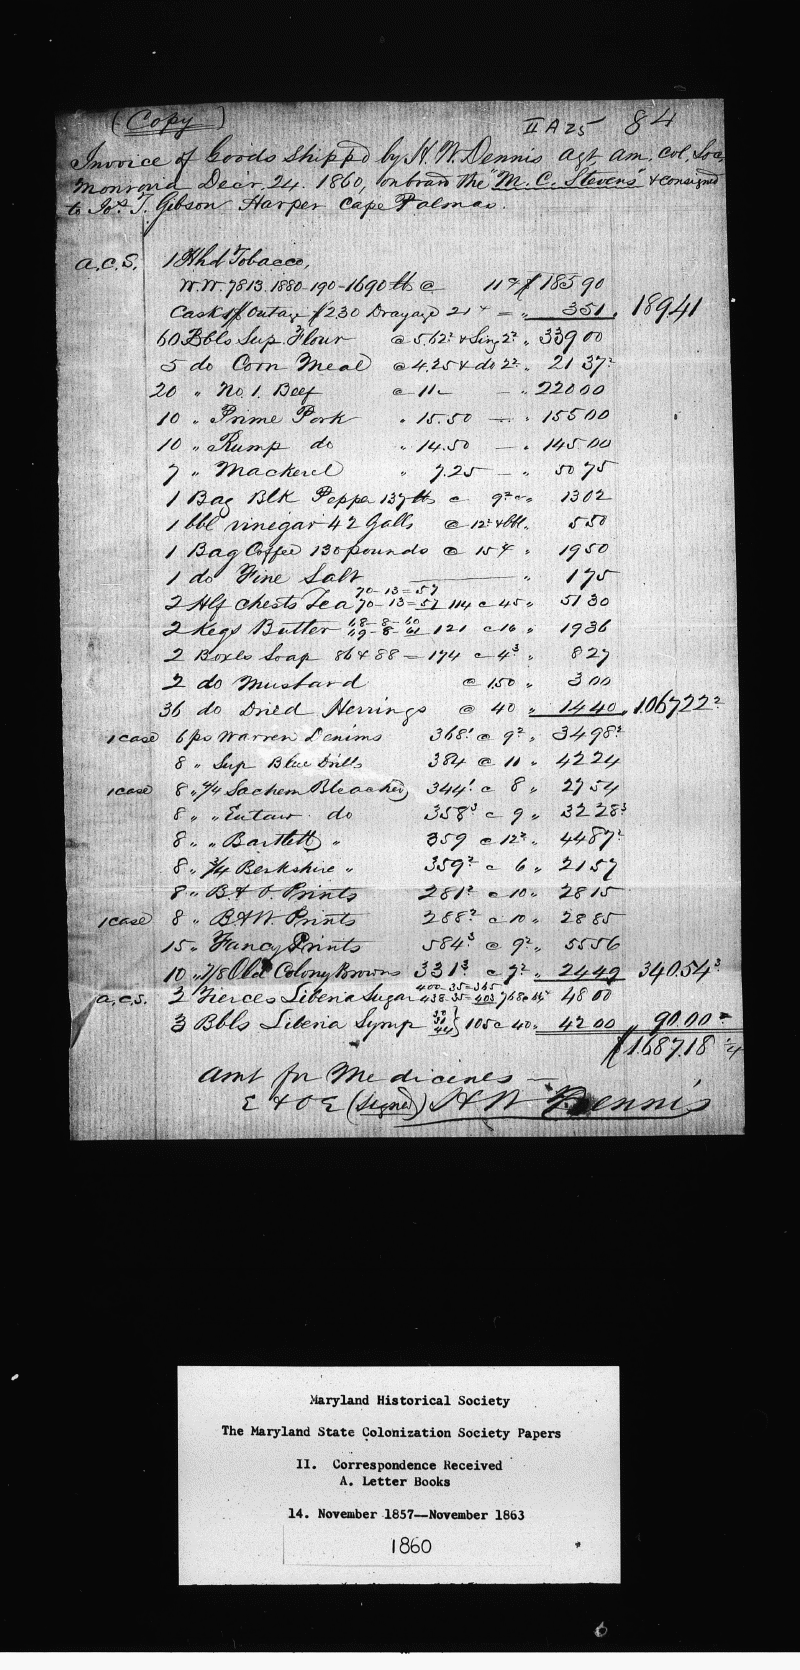 (Copy)
II A 25 84
Invoice of Goods Shipp'd by H. W. Dennis Agt. Am. Col. Soc.
Monrovia Decr. 24. 1860, on board the "M. C. Stevens" & consigned
to Jos. T. Gibson Harper Cape Palmas.
A.C.S. 1 Hhd Tobacco,
W.W. 7813. 1880-190-1690 lb @ 11 $ 185 90
Cask $ 2.30 Drayage 21 = " 3 51 " 189.41
60 Bbls Sup. Flour @ 5.62² 2² " 339 00
5 do Corn Meal @ 4.25 & do 2² " 21 37²
20 " No. 1. Beef @ 11 — " 220 00
10 " Prime Pork " 15.50 — " 155 00
10 " Rump do " 14.50 — " 145 00
7 " Mackerel " 7.25 — " 50 75
1 Bag Blk Pepper 137 lb @ 9² " 13 02
1 bbl vinegar 42 Galls @ 12² & bbl. " 5 50
1 Bag Coffee 130 pounds @ 15 ¢ " 19 50
1 do Fine Salt " 1 75
70-13=57
2 Hlf chests Tea 70-13=57 114 @ 45 " 51 30
68-8-60
2 Kegs Butter 69-8-61 121 @ 16 " 19 36
2 Boxes Soap 86 & 88 = 174 @ 4³ " 8 27
2 do Mustard @ 1.50 " 3 00
36 do Dried Herrings @ 40 " 14 40 " 1.067 22²
1 case 6 ps Warren Denims 368¹ @ 9² " 34 98²
8 " Sup Blue Drills 384 @ 11 " 42 24
1 case 8 " 4/4 Sachem Bleached 344¹ @ 8 " 27 54
8 " " Eutaw do 358³ @ 9 " 32 28³
8 " " Bartlett " 359 @ 12² " 44 87²
8 " 3/4 Berkshire " 359² @ 6 " 21 57
8 " B & O. Prints 281² @ 10 " 28 15
1 case 8 " B & W. Prints 288² @ 10 " 28 85
15 " Fancy Prints 584³ @ 9² " 55 56
10 " 7/8 Old Colony Browns 331³ @ 7² " 24 49 340.54³
400-35=365
A.C.S. 2 Tierces Liberia Sugar 438-35=403 768 @ 6¼ 48 00
3 Bbls Liberia Syrup 105 @ 40 " 42 00 " 90.00
$ 1.687.18 ¾
Amt for Medicines —
E & O E (Signed) H W Dennis
Maryland Historical Society
The Maryland State Colonization Society Papers
II. Correspondence Received
A. Letter Books
14. November 1857--November 1863
1860